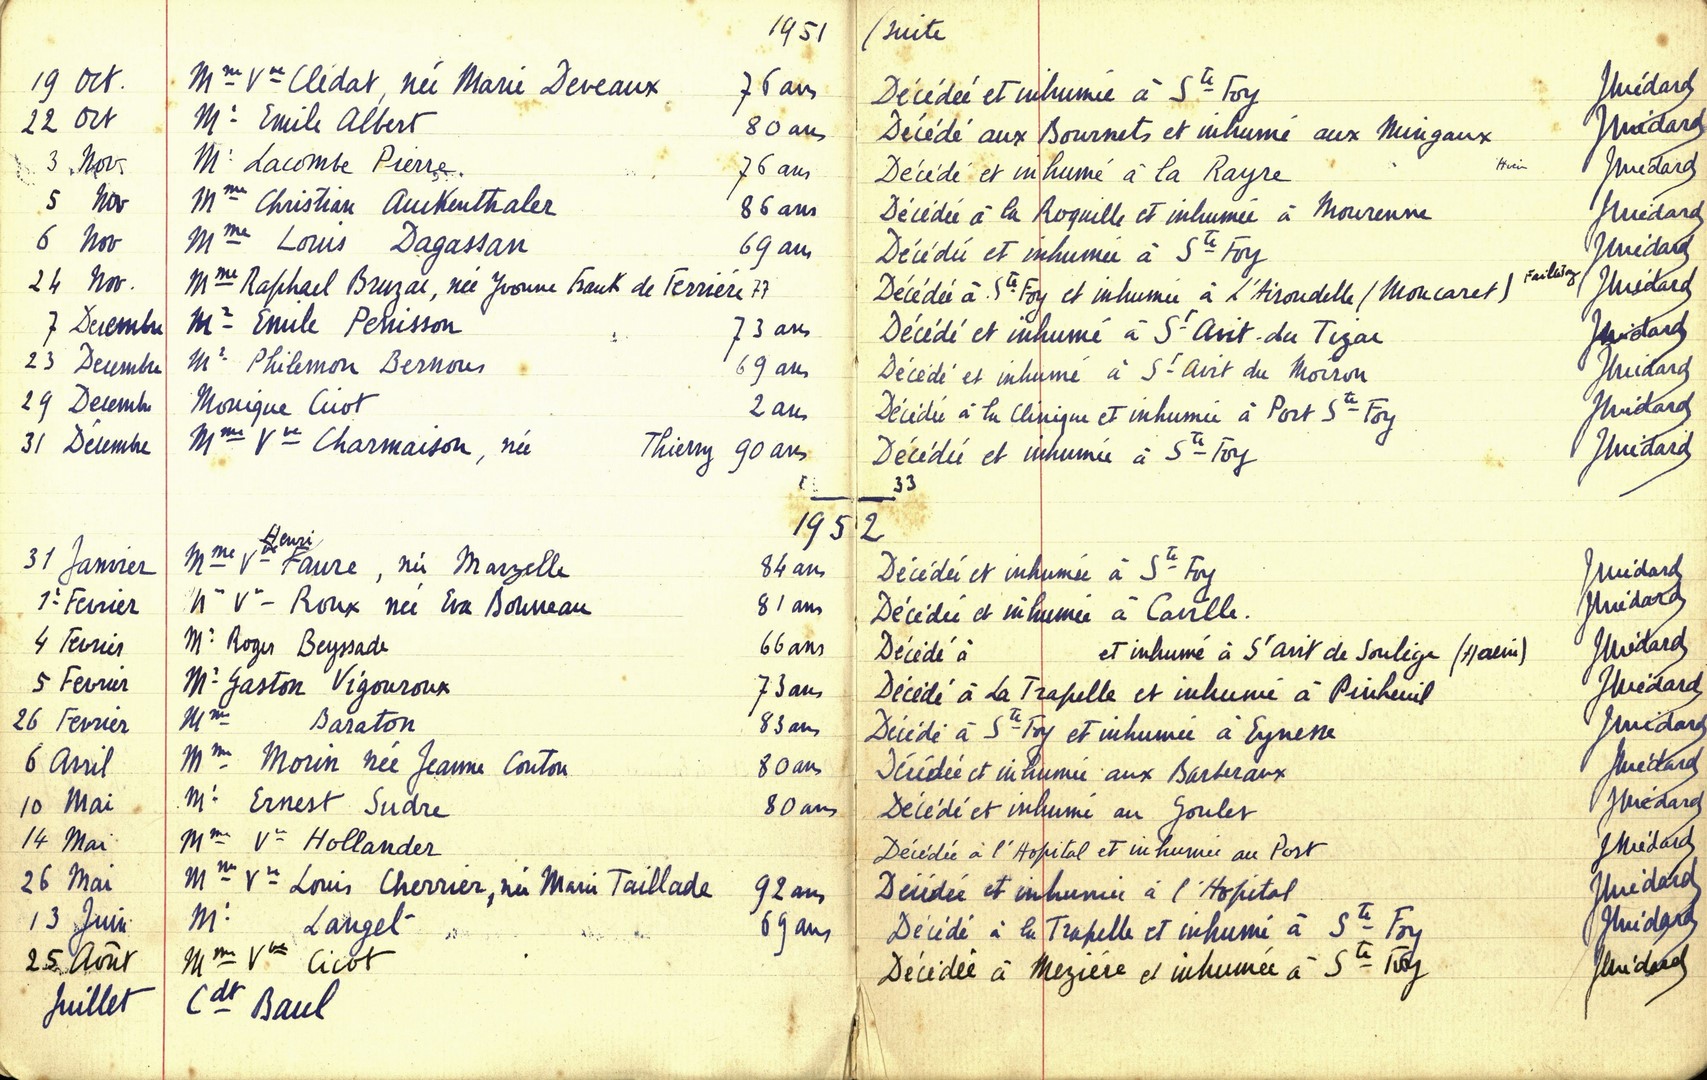 1951 (suite
19 Oct. Mme Vve Clédat, née Marie Deveaux 76 ans Décédée et inhumée à Ste Foy JMédard
22 Oct Mr Emile Albert 80 ans Décédé aux Bournets et inhumé aux Mingaux JMédard
3 Nov. Mr Lacombe Pierre. 76 ans Décédé et inhumé à la Rayre JMédard
5 Nov Mme Christian Auckenthaler 86 ans Décédée à la Roquille et inhumée à Mourenne JMédard
6 Nov Mme Louis Dagassan 69 ans Décédée et inhumée à Ste Foy JMédard
24 Nov. Mme Raphael Bruzac, née Yvonne Frank de Ferrière 77 Décédée à Ste Foy et inhumée à L'Hirondelle (Moncaret) JMédard
7 Decembre Mr Emile Penisson 73 ans Décédé et inhumé à St Avit-du Tizac JMédard
23 Decembre Mr Philemon Bernous 69 ans Décédé et inhumé à St Avit du Moiron JMédard
29 Decembre Monique Cicot 2 ans Décédée à la Clinique et inhumée à Port Ste Foy JMédard
31 Décembre Mme Vve Charmaison, née Thierry 90 ans Décédée et inhumée à Ste Foy JMédard
33
1952
Henri
31 Janvier Mme Vve Faure, née Marzelle 84 ans Décédée et inhumée à Ste Foy JMédard
1r Fevrier Me Ve Roux née Eva Bonneau 81 ans Décédée et inhumée à Caville. JMédard
4 Fevrier Mr Roger Beyssade 66 ans Décédé à et inhumé à St avit de Soulège (Haein) JMédard
5 Fevrier Mr Gaston Vigouroux 73 ans Décédé à La Trapelle et inhumé à Pinheuil JMédard
26 Fevrier Mme Baraton 83 ans Décédé à Ste Foy et inhumée à Eynesse JMédard
6 Avril Mme Morin née Jeanne Couton 80 ans Décédée et inhumée aux Barberaux JMédard
10 Mai Mr Ernest Sudre 80 ans Décédé et inhumé au Goulet JMédard
14 Mai Mme Ve Hollander Décédée à l'Hopital et inhumée au Port JMédard
26 Mai Mme Vve Louis Cherrier, née Marie Taillade 92 ans Décédée et inhumée à l'Hopital JMédard
13 Juin Mr Langel 69 ans Décédé à la Trapelle et inhumé à Ste Foy JMédard
25 Août Mme Vve Cicot Décédée à Mezière et inhumée à Ste Foy JMédard
Juillet Cdt Baul